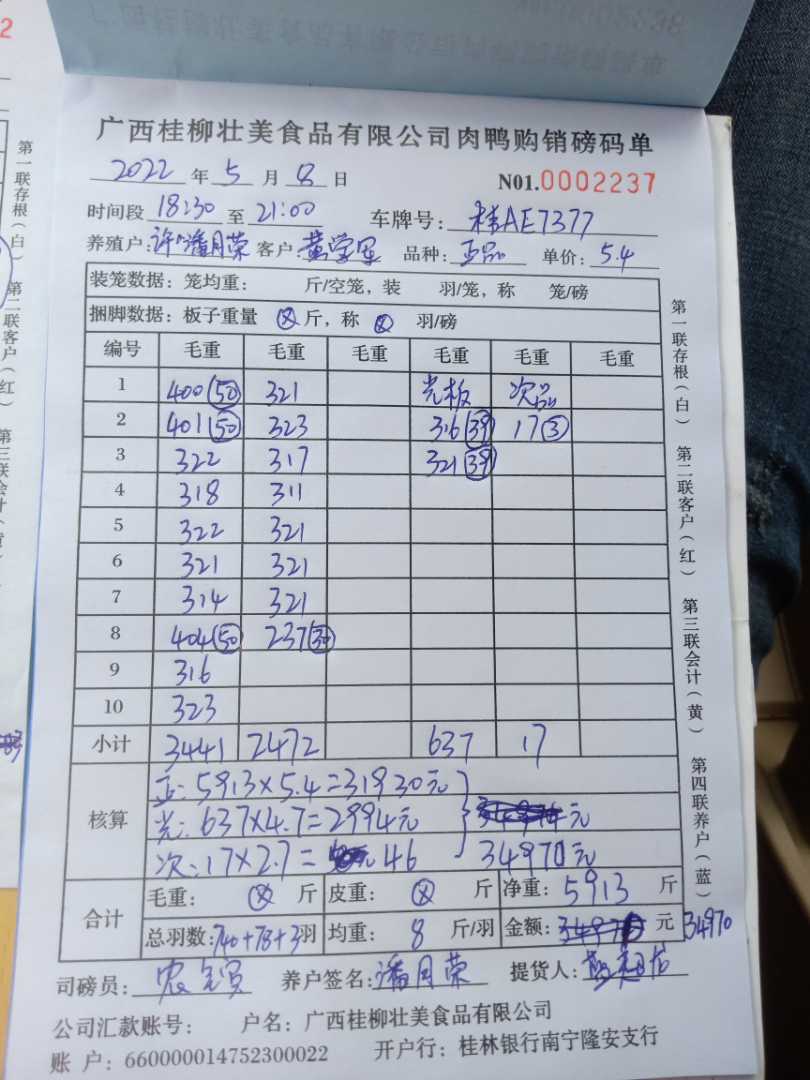 广西桂柳壮美食品有限公司肉鸭购销磅码单
2022 年 5 月 8 日 N01.0002237
时间段 18:30 至 21:00 车牌号: 桂AE7377
养殖户: 许 潘月荣 客户: 黄学军 品种: 正品 单价: 5.4
装笼数据: 笼均重: 斤/空笼, 装 羽/笼, 称 笼/磅
捆脚数据: 板子重量 ⊗ 斤, 称 ⊗ 羽/磅
编号 毛重 毛重 毛重 毛重 毛重 毛重
1 400(50) 321 光板 次品
2 401(50) 323 316(39) 17(3)
3 322 317 321(39)
4 318 311
5 322 321
6 321 321
7 314 321
8 404(50) 237(30)
9 316
10 323
小计 3441 2472 637 17
核算
正: 5913×5.4=31930元
光: 637×4.7=2994元 元
次: 17×2.7= 46 34970元
合计
毛重: ⊗ 斤 皮重: ⊗ 斤 净重: 5913 斤
总羽数: 740+78+3羽 均重: 8 斤/羽 金额: 34970 元 34970
司磅员: 养户签名: 潘月荣 提货人:
公司汇款账号: 户名: 广西桂柳壮美食品有限公司
账 户: 660000014752300022 开户行: 桂林银行南宁隆安支行
第一联存根(白) 第二联客户(红) 第三联会计(黄) 第四联养户(蓝)
2
第一联存根(白)
第二联客户(红)
第三联会计